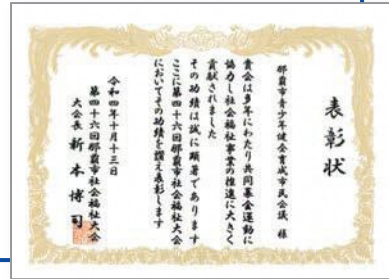 表彰状
那覇市青少年健全育成市民会議 様
貴会は多年にわたり共同募金運動に
協力し社会福祉事業の推進に大きく
貢献されました
その功績は誠に顕著であります
ここに第四十六回那覇市社会福祉大会
においてその功績を讃え表彰します
令和四年十月十三日
第四十六回那覇市社会福祉大会
大会長 新本博司